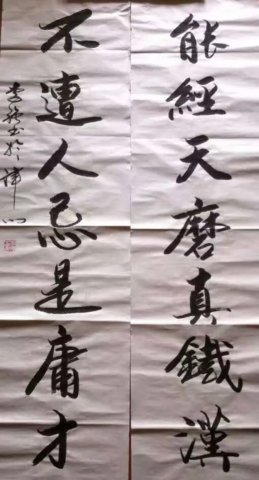 能經天磨真鐵漢
不遭人忌是庸才